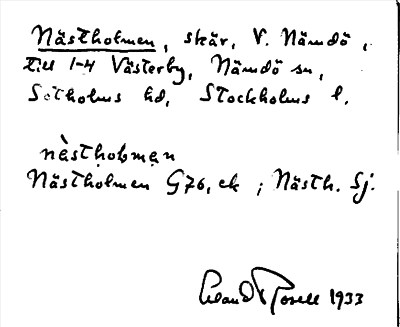 Nästholmen, skär, V. Nämdö,
till 1-4 Västerby, Nämdö sn,
Sotholms hd, Stockholms l.
nästhobmən
Nästholmen G76, ek; Nästh. Sj.
Rosell 1933